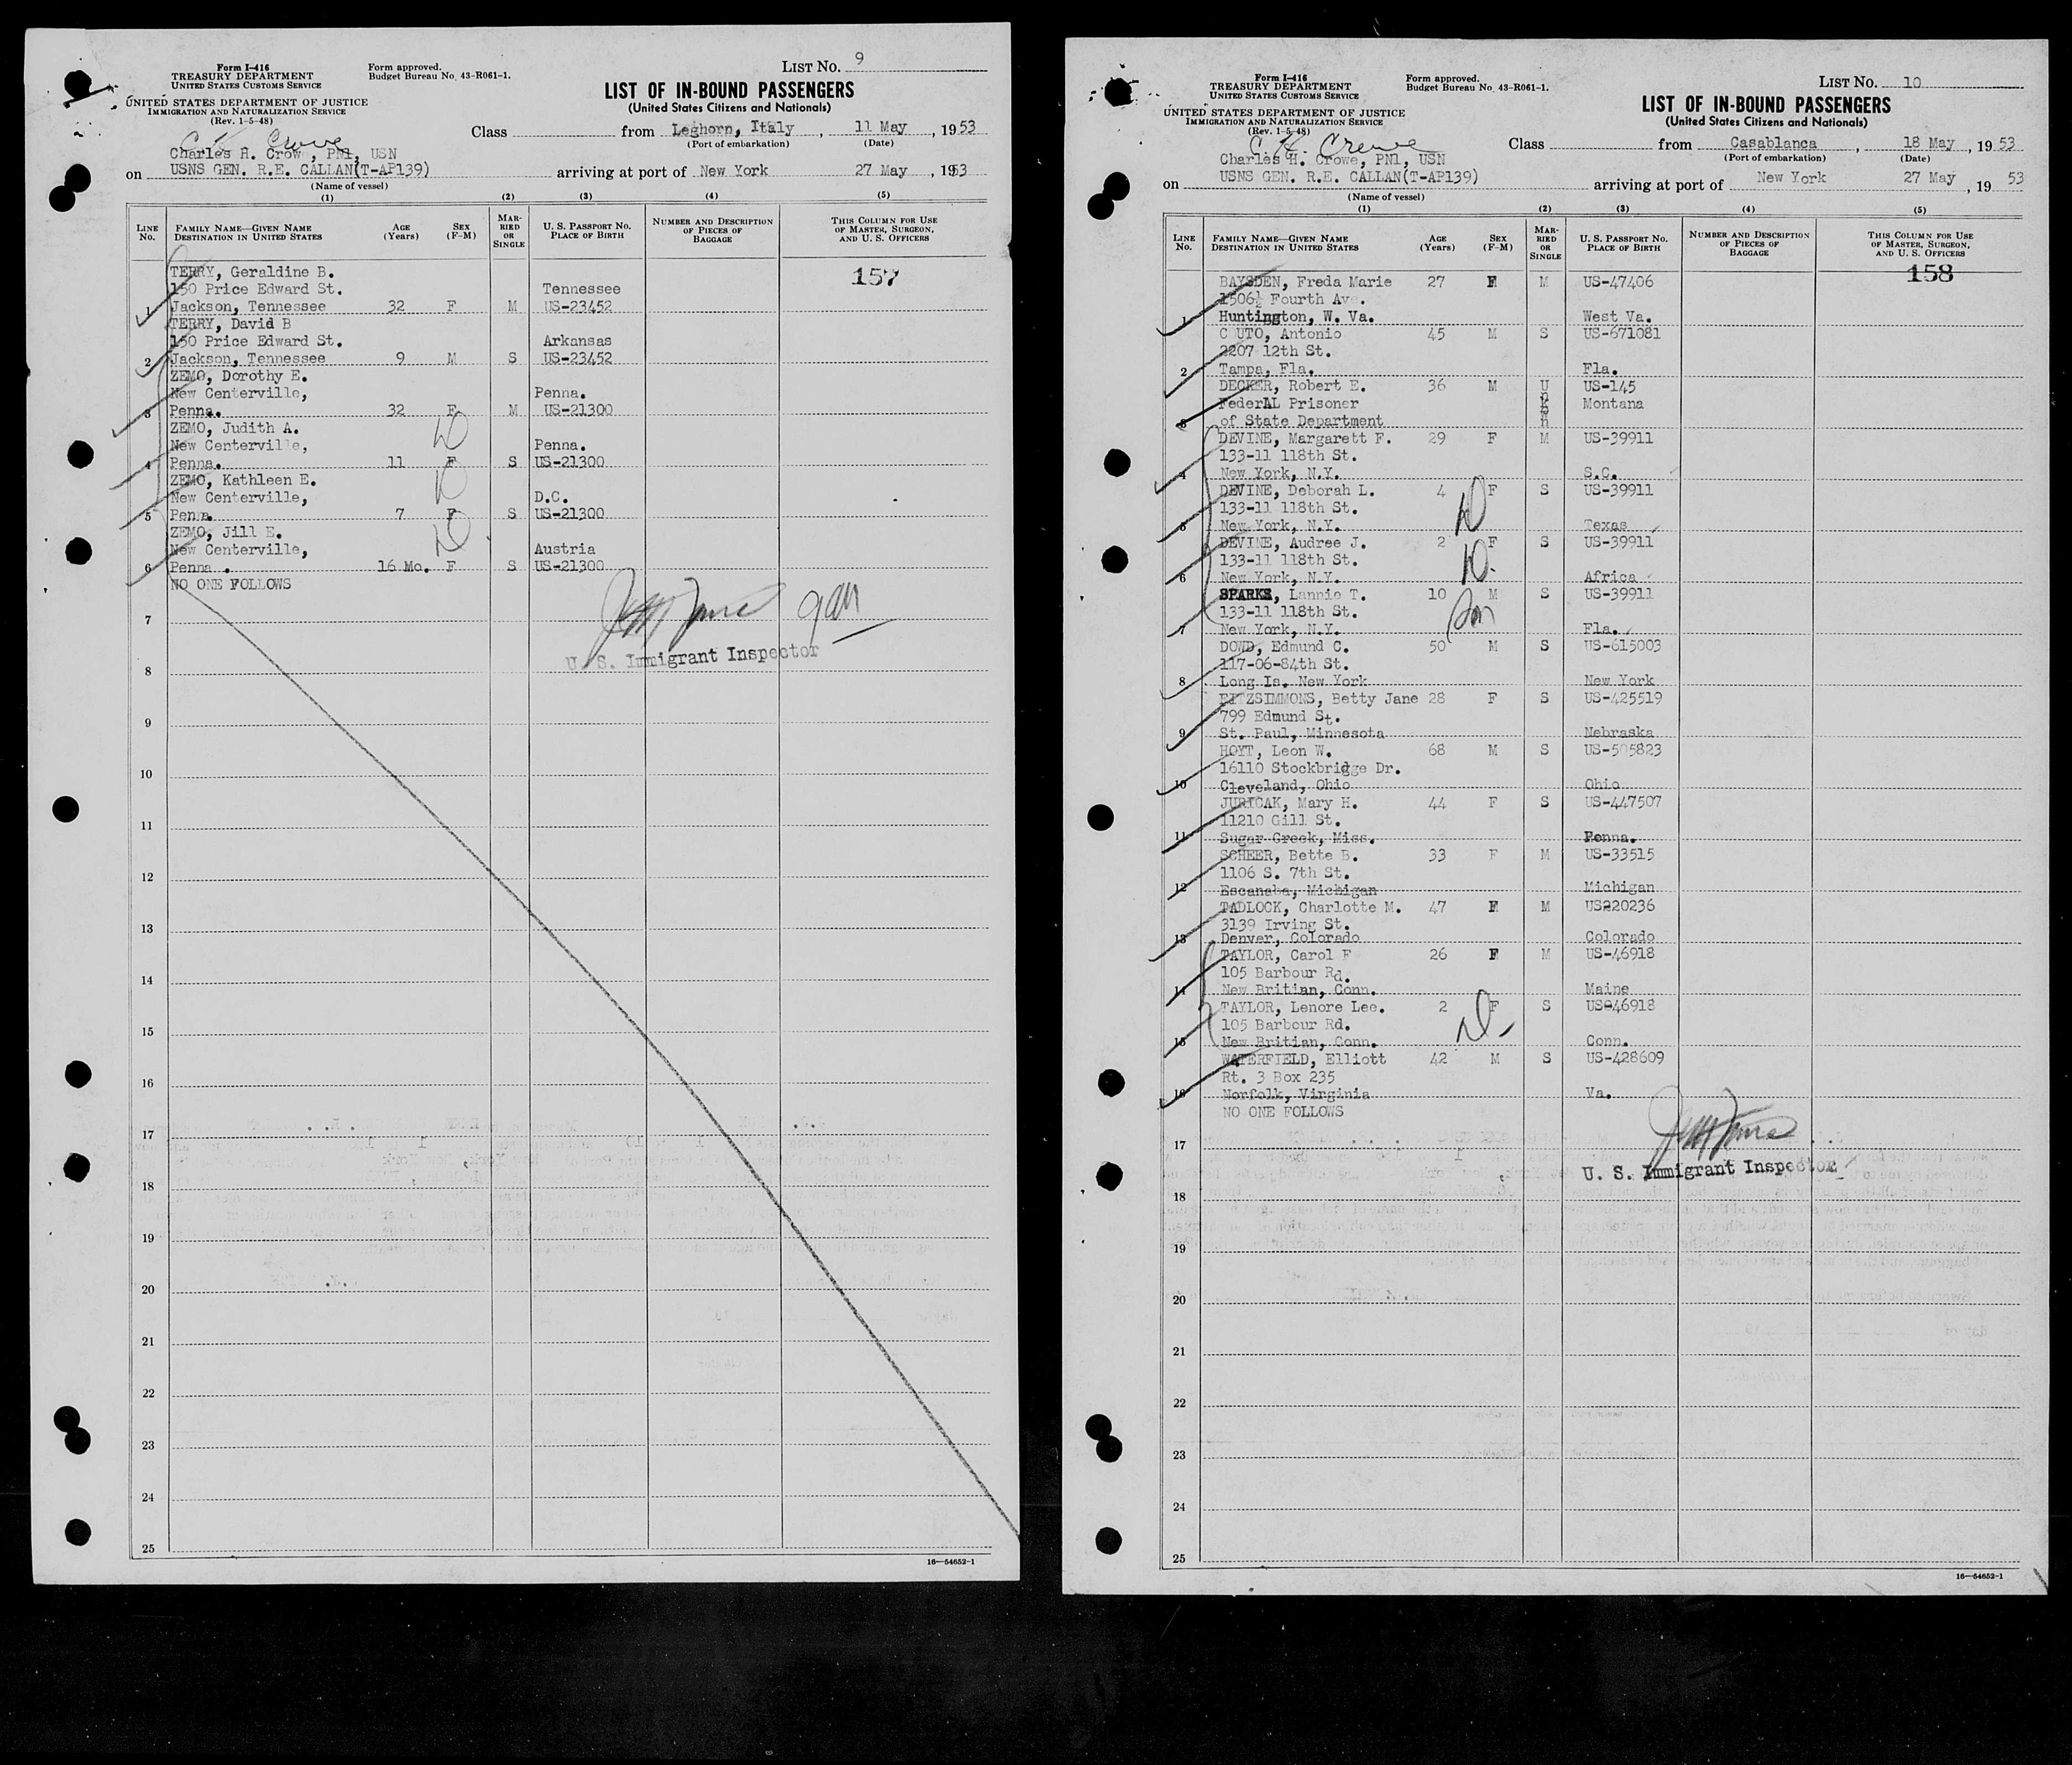 Form I-416
TREASURY DEPARTMENT
UNITED STATES CUSTOMS SERVICE
Form approved.
Budget Bureau No. 43-R061-1.
LIST NO. 9
UNITED STATES DEPARTMENT OF JUSTICE
IMMIGRATION AND NATURALIZATION SERVICE
(Rev. 1-5-48)
LIST OF IN-BOUND PASSENGERS
(United States Citizens and Nationals)
Class from Leghorn, Italy, 11 May, 1953
(Port of embarkation) (Date)
C H Crowe
Charles H. Crow, PN1, USN
on USNS GEN. R.E. CALLAN(T-AP139) arriving at port of New York 27 May, 1953
(Name of vessel)
(1) (2) (3) (4) (5)
LINE No. FAMILY NAME—GIVEN NAME DESTINATION IN UNITED STATES AGE (Years) SEX (F-M) MARRIED OR SINGLE U. S. PASSPORT No. PLACE OF BIRTH NUMBER AND DESCRIPTION OF PIECES OF BAGGAGE THIS COLUMN FOR USE OF MASTER, SURGEON, AND U. S. OFFICERS
TERRY, Geraldine B. 157
150 Price Edward St. Tennessee
1 Jackson, Tennessee 32 F M US-23452
TERRY, David B
150 Price Edward St. Arkansas
2 Jackson, Tennessee 9 M S US-23452
ZEMO, Dorothy E.
New Centerville, Penna.
3 Penna. 32 F M US-21300
ZEMO, Judith A.
New Centerville, Penna.
4 Penna. 11 F S US-21300
ZEMO, Kathleen E.
New Centerville, D.C.
5 Penna. 7 F S US-21300
ZEMO, Jill E.
New Centerville, Austria
6 Penna. 16 Mo. F S US-21300
NO ONE FOLLOWS
7
U. S. Immigrant Inspector
8
9
10
11
12
13
14
15
16
17
18
19
20
21
22
23
24
25
16—54652-1
Form I-416
TREASURY DEPARTMENT
UNITED STATES CUSTOMS SERVICE
Form approved.
Budget Bureau No. 43-R061-1.
LIST NO. 10
UNITED STATES DEPARTMENT OF JUSTICE
IMMIGRATION AND NATURALIZATION SERVICE
(Rev. 1-5-48)
LIST OF IN-BOUND PASSENGERS
(United States Citizens and Nationals)
Class from Casablanca, 18 May, 1953
(Port of embarkation) (Date)
C. H. Crowe
Charles H. Crowe, PN1, USN
on USNS GEN. R.E. CALLAN(T-AP139) arriving at port of New York 27 May, 1953
(Name of vessel)
(1) (2) (3) (4) (5)
LINE No. FAMILY NAME—GIVEN NAME DESTINATION IN UNITED STATES AGE (Years) SEX (F-M) MARRIED OR SINGLE U. S. PASSPORT No. PLACE OF BIRTH NUMBER AND DESCRIPTION OF PIECES OF BAGGAGE THIS COLUMN FOR USE OF MASTER, SURGEON, AND U. S. OFFICERS
158
BAYSDEN, Freda Marie 27 F M US-47406
1506½ Fourth Ave.
1 Huntington, W. Va. West Va.
C UTO, Antonio 45 M S US-671081
2207 12th St.
2 Tampa, Fla. Fla.
DECKER, Robert E. 36 M Unkown US-145
FederAL Prisoner Montana
3 of State Department
DEVINE, Margarett F. 29 F M US-39911
133-11 118th St.
4 New York, N.Y. S.C.
DEVINE, Deborah L. 4 F S US-39911
133-11 118th St.
5 New York, N.Y. Texas
DEVINE, Audree J. 2 F S US-39911
133-11 118th St.
6 New York, N.Y. Africa
SPARKS, Lannie T. 10 M S US-39911
133-11 118th St.
7 New York, N.Y. Fla.
DOWD, Edmund C. 50 M S US-615003
117-06-84th St.
8 Long Is, New York New York
FITZSIMMONS, Betty Jane 28 F S US-425519
799 Edmund St.
9 St. Paul, Minnesota Nebraska
HOYT, Leon W. 68 M S US-505823
16110 Stockbridge Dr.
10 Cleveland, Ohio Ohio
JURICAK, Mary H. 44 F S US-447507
11210 Gill St.
11 Sugar Creek, Miss. Penna.
SCHEER, Bette B. 33 F M US-33515
1106 S. 7th St.
12 Escanaba, Michigan Michigan
TADLOCK, Charlotte M. 47 F M US220236
3139 Irving St.
13 Denver, Colorado Colorado
TAYLOR, Carol F 26 F M US-46918
105 Barbour Rd.
14 New Britian, Conn. Maine
TAYLOR, Lenore Lee. 2 F S US-46918
105 Barbour Rd.
15 New Britian, Conn. Conn.
WATERFIELD, Elliott 42 M S US-428609
Rt. 3 Box 235
16 Norfolk, Virginia Va.
NO ONE FOLLOWS
17
U. S. Immigrant Inspector
18
19
20
21
22
23
24
25
16—54652-1